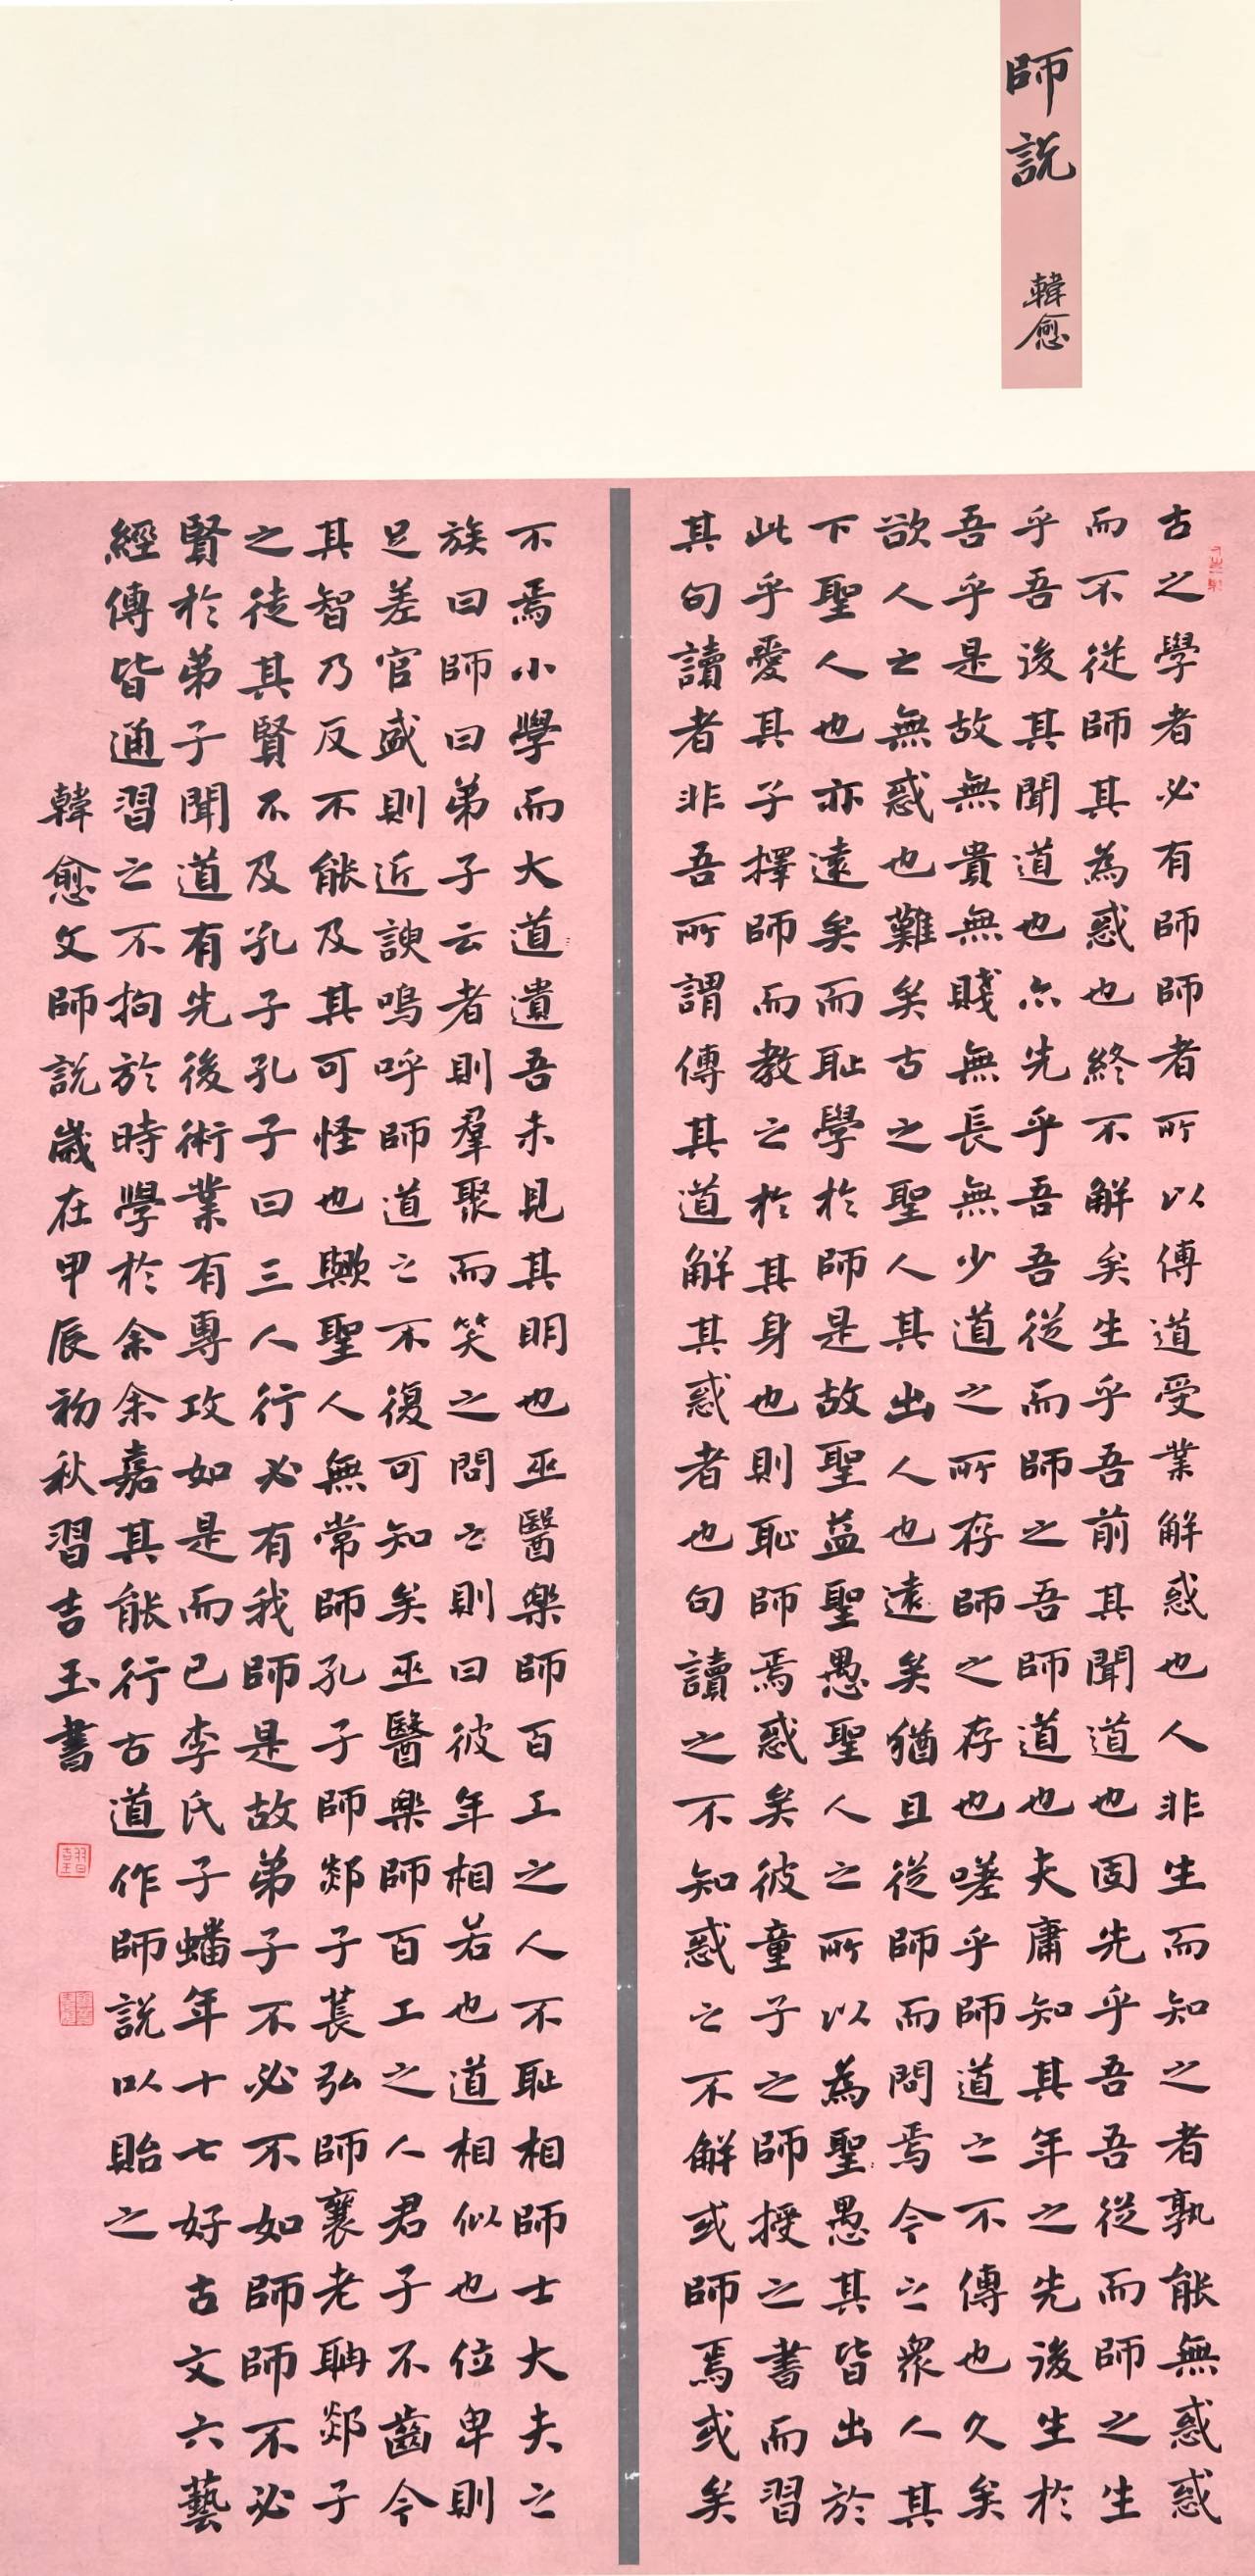 師說
韓愈
古之學者必有師師者所以傳道受業解惑也人非生而知之者孰能無惑惑
而不從師其為惑也終不解矣生乎吾前其聞道也固先乎吾吾從而師之生
乎吾後其聞道也亦先乎吾吾從而師之吾師道也夫庸知其年之先後生於
吾乎是故無貴無賤無長無少道之所存師之存也嗟乎師道之不傳也久矣
欲人之無惑也難矣古之聖人其出人也遠矣猶且從師而問焉今之衆人其
下聖人也亦遠矣而耻學於師是故聖益聖愚聖人之所以為聖愚其皆出於
此乎愛其子擇師而教之於其身也則恥師焉惑矣彼童子之師授之書而習
其句讀者非吾所謂傳其道解其惑者也句讀之不知惑之不解或師焉或矣
不焉小學而大道遺吾未見其明也巫醫樂師百工之人不耻相師士大夫之
族曰師曰弟子云者則羣聚而笑之問之則曰彼年相若也道相似也位卑則
足差官盛則近諛嗚呼師道之不復可知矣巫醫樂師百工之人君子不齒今
其智乃反不能及其可怪也歟聖人無常師孔子師郯子萇弘師襄老聃郯子
之徒其賢不及孔子孔子曰三人行必有我師是故弟子不必不如師師不必
賢於弟子聞道有先後術業有專攻如是而已李氏子蟠年十七好古文六藝
經傳皆通習之不拘於時學於余余嘉其能行古道作師說以貽之
韓愈文師說歲在甲辰初秋習吉玉書
習吉玉